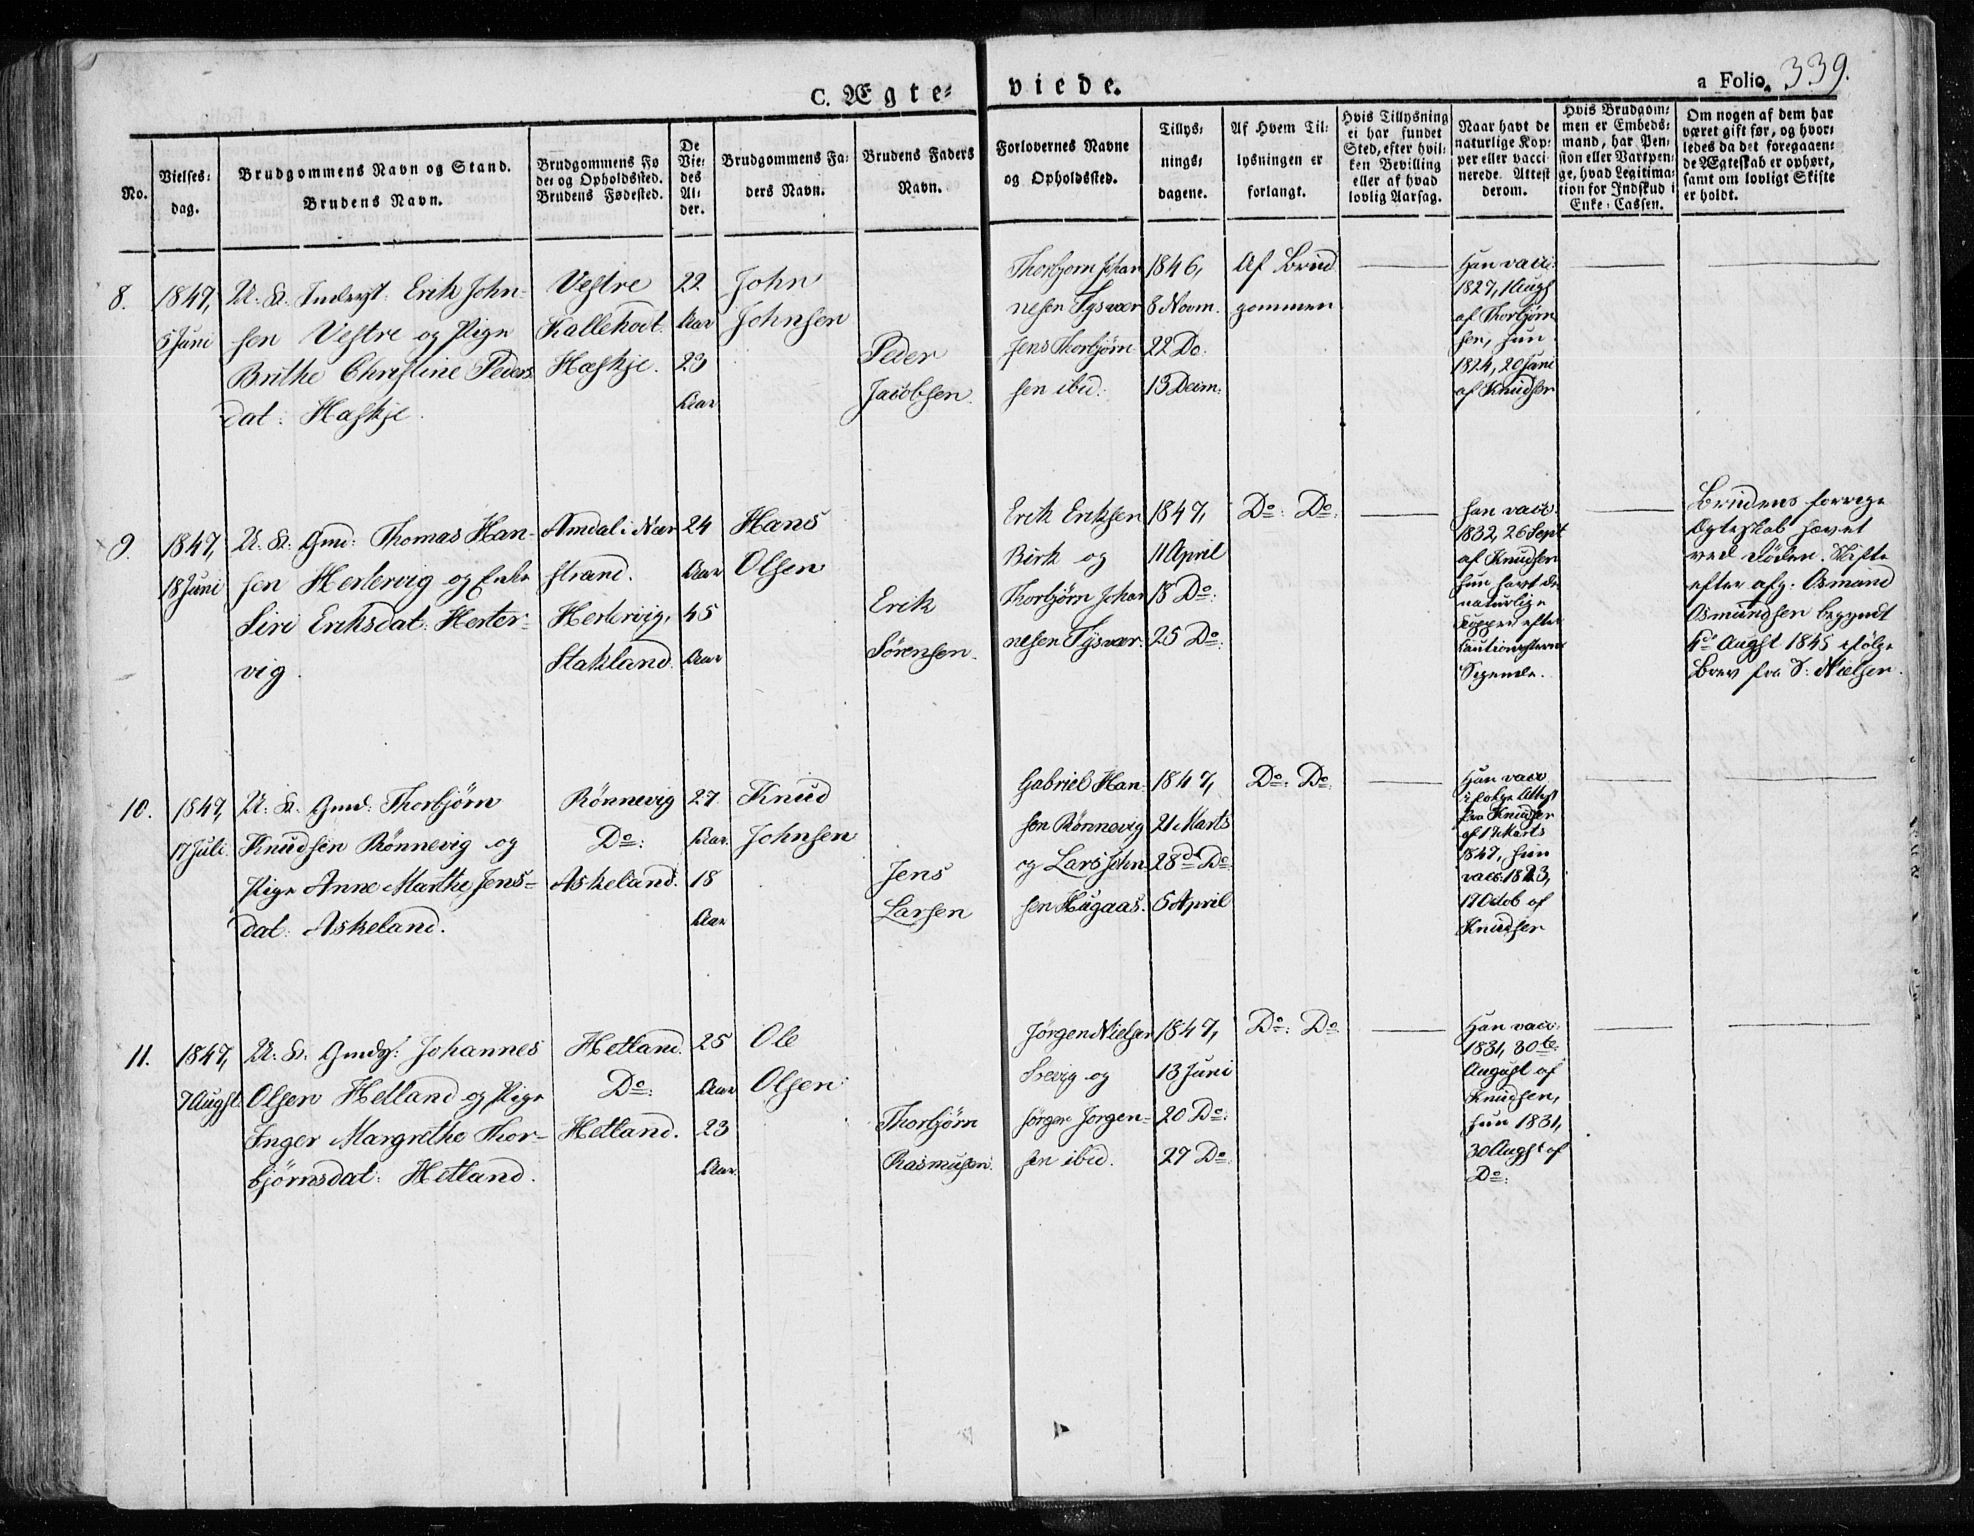 C. Ægte-
viede.
a Folio. 339.
No.
Vielses-
dag.
Brudgommens Navn og Stand.
Brudens Navn.
Brudgommens Fø
de: og Opholdssted.
Brudens Fødested.
De
Vie-
des
Al-
der.
Brudgommens Fa-
ders Navn.
Brudens Faders
Navn.
Forlovernes Navne
og Opholdssted.
Tillys-
nings-
dagene.
Af Hvem Til-
lysningen er
forlangt.
Hvis Tillysning
ei har fundet
Sted, efter hvil-
ken Bevilling
eller af hvad
lovlig Aarsag.
Naar havt de
naturlige Kop-
per eller vacci-
nerede. Attest
derom.
Hvis Brudgom-
men er Embeds-
mand, har Pen-
sion eller Vartpen-
ge, hvad Legitima-
tion for Indskud i
Enke-Cassen.
Om nogen af dem har
været gift før, og hvor-
ledes da det foregaaen-
de Ægteskab er ophørt,
samt om lovligt Skifte
er holdt.
8.
1847,
5 Juni
U. K. Inderst: Erik John-
sen Vestre og Pige
Brithe Christine Peders
dat: Haskje.
Vestre
Kallehovt.
Haskje.
22
Aar
23
Aar
John
Johnsen
Peder
Jacobsen.
Thorbjorn Johan
nesen Tysvær
Jens Thorbjörn-
sen ibid:
1846,
8 Novm.
22 Do:
13 Decm:
Af Brud
gommen
Han vacc:
1827, 1 Augst
af Thorbjörn
sen, hun
1824, 20 Juni
af Knudsen
9.
1847,
18 Juni
U. K: Gmd: Thomas Han-
sen Hertervig og Enke
Siri Eriksdat: Herter-
vig.
Amdal i Nær
strand.
Hertervig,
Stakland.
24
Aar
45
Aar
Hans
Olsen
Erik
Sörensen.
Erik Eriksen
Birk og
Thorbjörn Johan
nesen Tysvær.
1847,
11 April
18 Do:
25 Do:
Do: Do:
han vacc.
1832, 26 Sept
af Knudsen
hun havt de
naturlige
Kopper efter
Sigende.
Brudens forrige
Ægteskab hævet
ved Döden. Skifte
efter afg. Osmund
Osmundsen begyndt
4de Augst 1845 ifölge
Brev fra S: Nielsen.
10.
1847,
17 Juli.
U. K. Gmd: Thorbjörn
Knudsen Rönnevig og
Pige Anne Marthe Jens-
dat: Askeland.
Rönnevig
Do:
Askeland.
27
Aar.
18
Aar
Knud
Johnsen
Jens
Larsen
Gabriel Han-
sen Rönnevig
og Lars John
sen Hugaas.
1847,
21 Marts
28de Do
5 April
Do: Do
Han vacc
ifolge Attest
fra Knudsen
af 1 Marts
1847, hun
vacc: 1823,
17 Octob af
Knudsen
11.
1847,
7 Augst.
U. K. Gmds: Johannes
Olsen Hetland og Pige
Inger Margrethe Thor-
björnsdat: Hetland.
Hetland.
Do:
Hetland.
25
Aar
23
Aar
Ole
Olsen
Thorbjörn
Rasmusen.
Jörgen Nielsen
Svevig og
Jörgen Jorgen-
sen ibid.
1847,
13 Juni
20 Do:
27 Do:
Do: Do
Han vacc.
1831, 30te
August af
Knudsen,
hun 1831,
30 Augst af
Do: